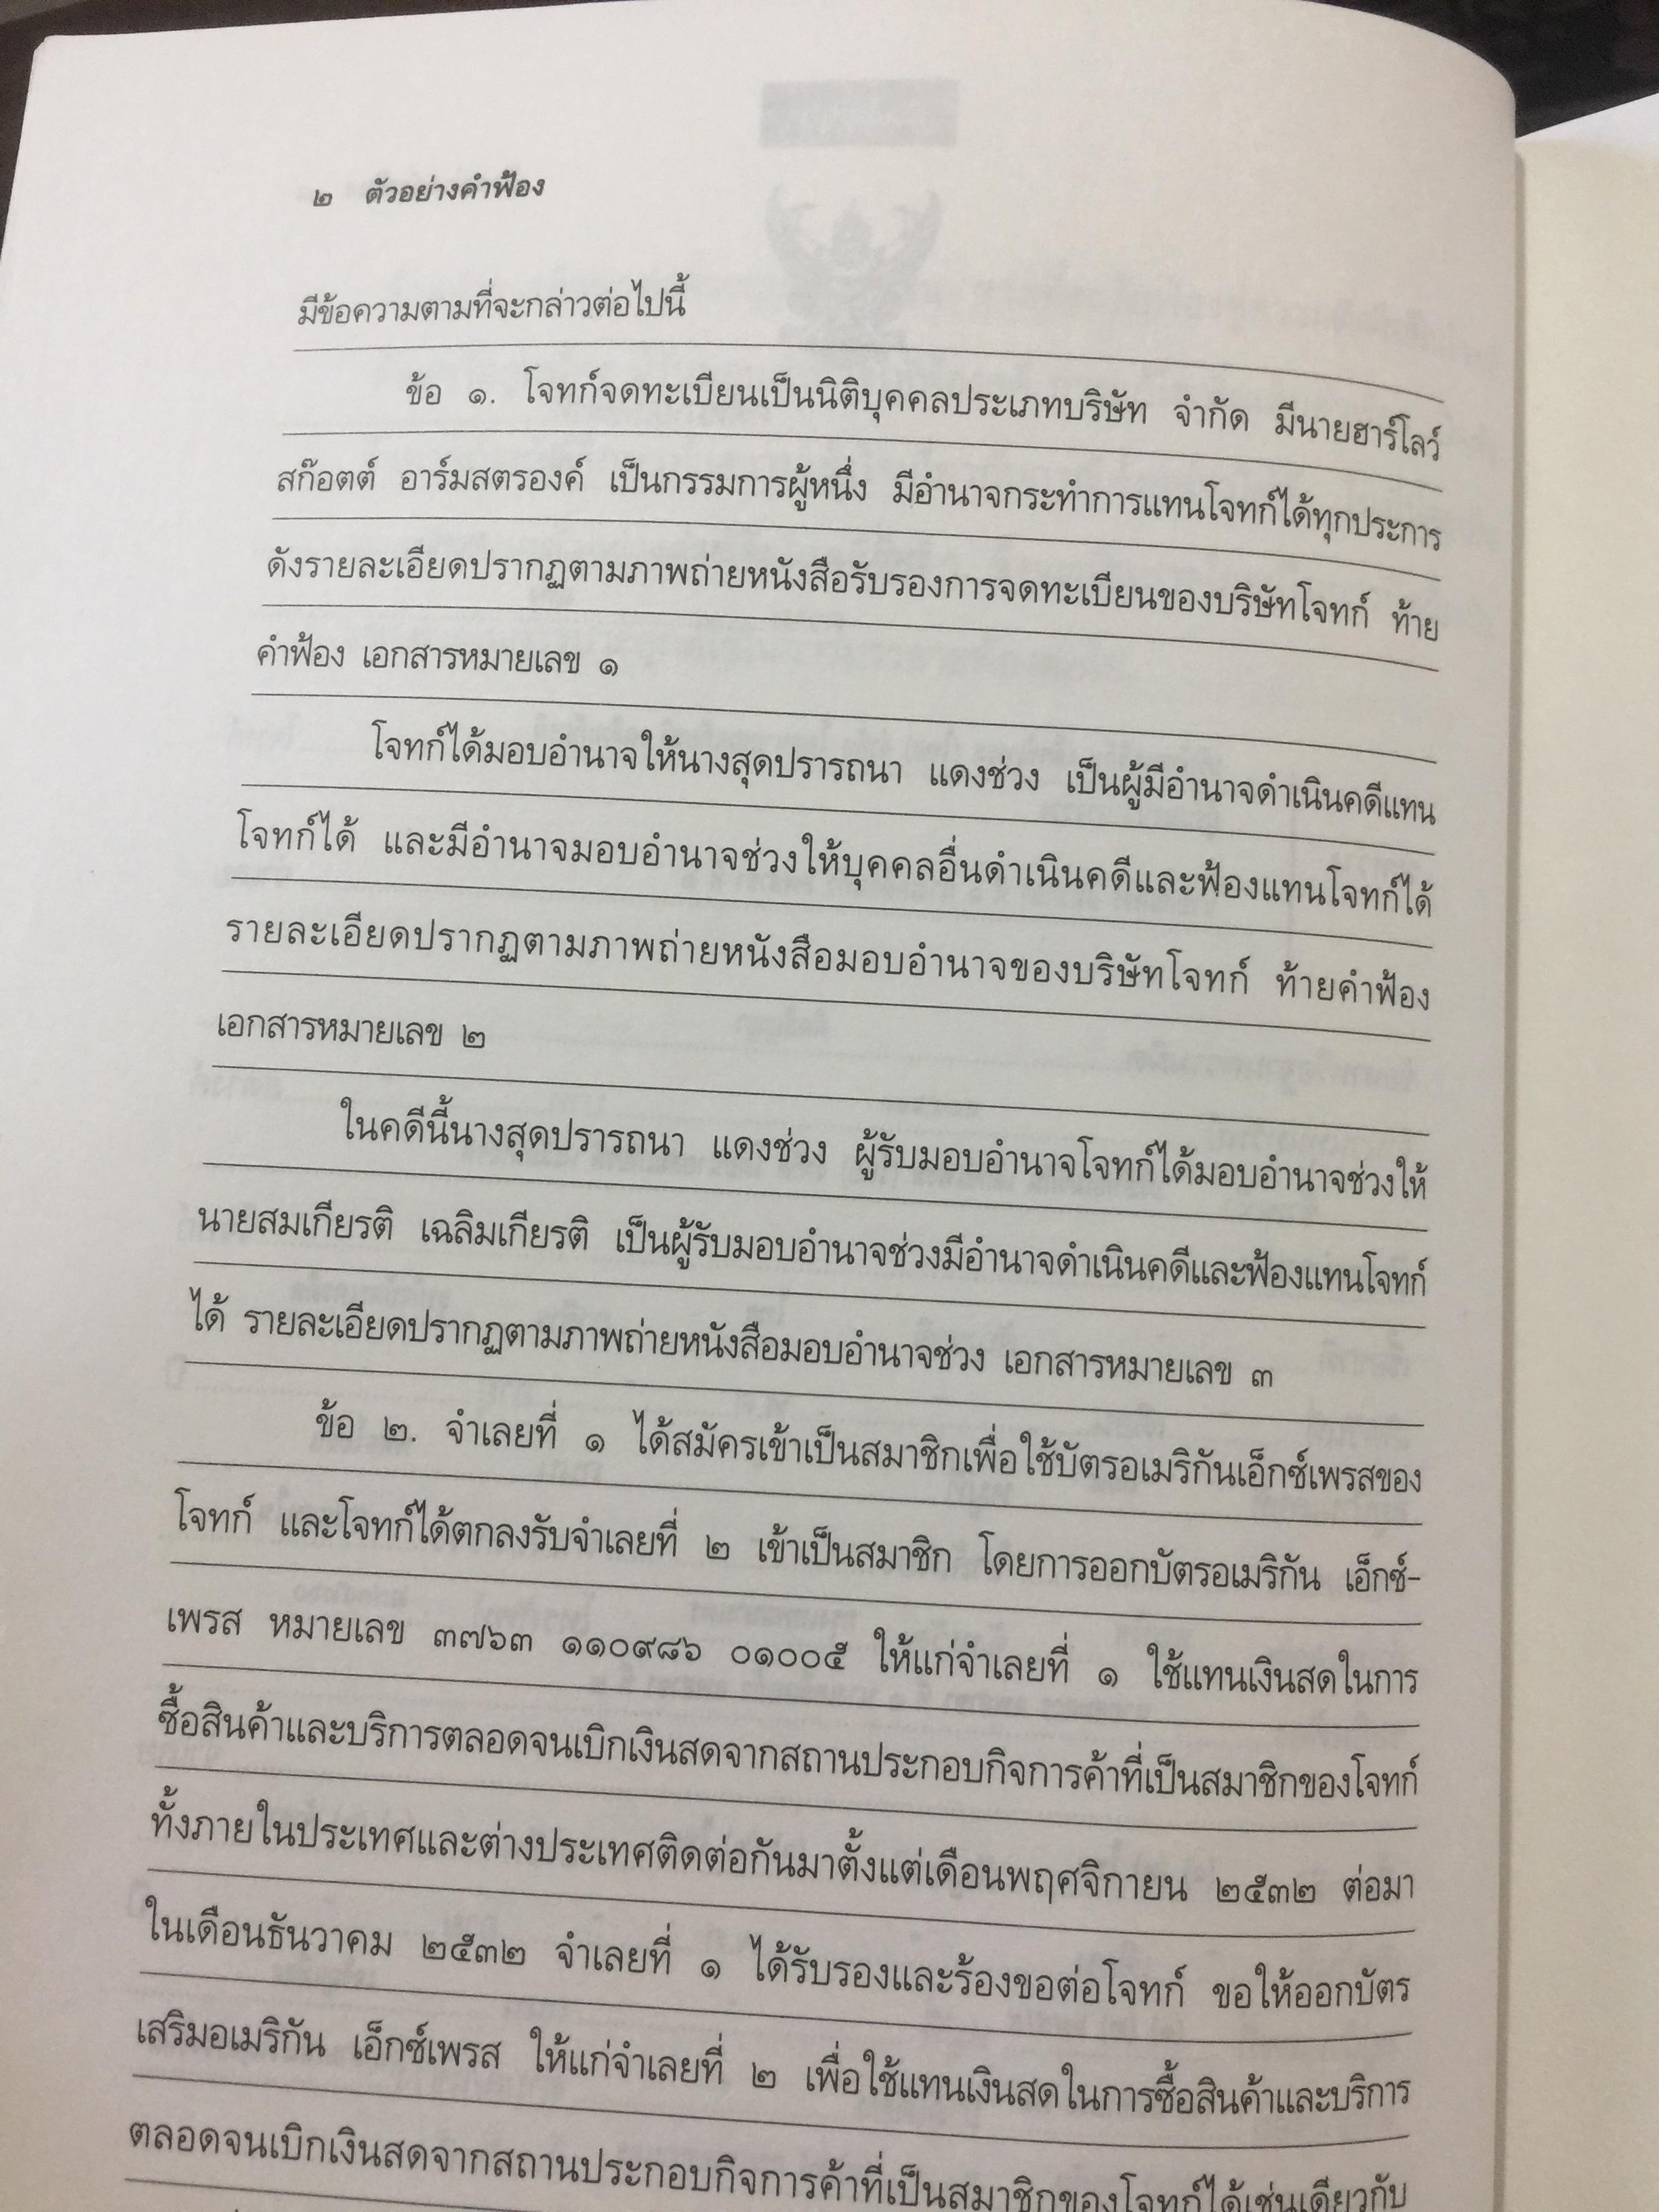 ๒ ตัวอย่างคำฟ้อง
มีข้อความตามที่จะกล่าวต่อไปนี้
ข้อ ๑. โจทก์จดทะเบียนเป็นนิติบุคคลประเภทบริษัท จำกัด มีนายฮาร์โลว์
สก๊อตต์ อาร์มสตรองค์ เป็นกรรมการผู้หนึ่ง มีอำนาจกระทำการแทนโจทก์ได้ทุกประการ
ดังรายละเอียดปรากฏตามภาพถ่ายหนังสือรับรองการจดทะเบียนของบริษัทโจทก์ ท้าย
คำฟ้อง เอกสารหมายเลข ๑
โจทก์ได้มอบอำนาจให้นางสุดปรารถนา แดงช่วง เป็นผู้มีอำนาจดำเนินคดีแทน
โจทก์ได้ และมีอำนาจมอบอำนาจช่วงให้บุคคลอื่นดำเนินคดีและฟ้องแทนโจทก์ได้
รายละเอียดปรากฏตามภาพถ่ายหนังสือมอบอำนาจของบริษัทโจทก์ ท้ายคำฟ้อง
เอกสารหมายเลข ๒
ในคดีนี้นางสุดปรารถนา แดงช่วง ผู้รับมอบอำนาจโจทก์ได้มอบอำนาจช่วงให้
นายสมเกียรติ เฉลิมเกียรติ เป็นผู้รับมอบอำนาจช่วงมีอำนาจดำเนินคดีและฟ้องแทนโจทก์
ได้ รายละเอียดปรากฏตามภาพถ่ายหนังสือมอบอำนาจช่วง เอกสารหมายเลข ๓
ข้อ ๒. จำเลยที่ ๑ ได้สมัครเข้าเป็นสมาชิกเพื่อใช้บัตรอเมริกันเอ็กซ์เพรสของ
โจทก์ และโจทก์ได้ตกลงรับจำเลยที่ ๒ เข้าเป็นสมาชิก โดยการออกบัตรอเมริกัน เอ็กซ์-
เพรส หมายเลข ๓๗๖๓ ๑๑๐๙๘๖ ๐๑๐๐๕ ให้แก่จำเลยที่ ๑ ใช้แทนเงินสดในการ
ซื้อสินค้าและบริการตลอดจนเบิกเงินสดจากสถานประกอบกิจการค้าที่เป็นสมาชิกของโจทก์
ทั้งภายในประเทศและต่างประเทศติดต่อกันมาตั้งแต่เดือนพฤศจิกายน ๒๕๓๒ ต่อมา
ในเดือนธันวาคม ๒๕๓๒ จำเลยที่ ๑ ได้รับรองและร้องขอต่อโจทก์ ขอให้ออกบัตร
เสริมอเมริกัน เอ็กซ์เพรส ให้แก่จำเลยที่ ๒ เพื่อใช้แทนเงินสดในการซื้อสินค้าและบริการ
ตลอดจนเบิกเงินสดจากสถานประกอบกิจการค้าที่เป็นสมาชิกของโจทก์ได้เช่นเดียวกับ